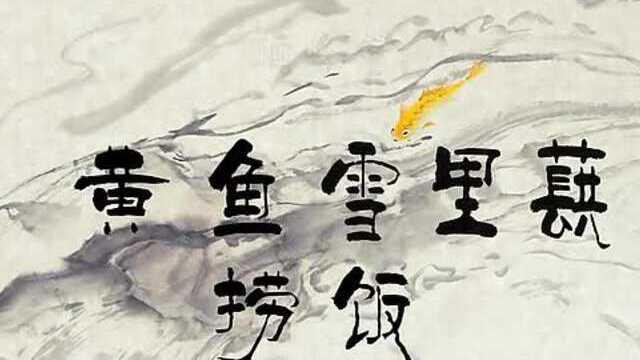 黄鱼雪里蕻
捞饭